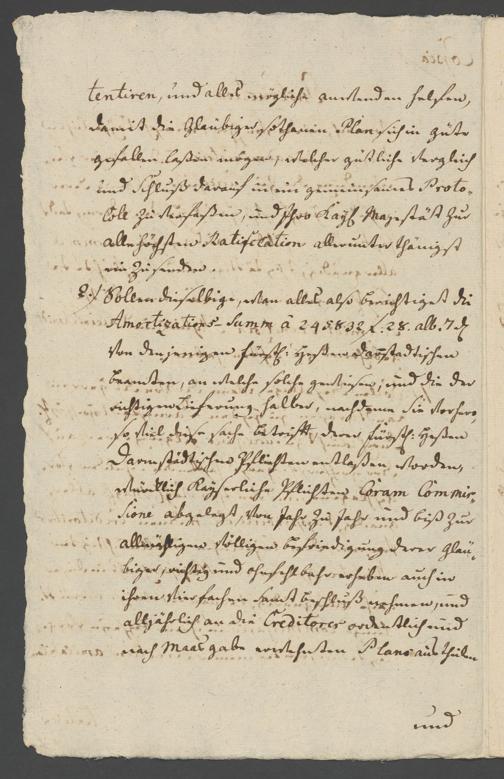 tentiren, und alles mögliche anwenden helfen,
damit die Glaubiger sothanen Plan sich in güte
gefallen laßen mögen, welcher gütliche Vergleich
und Schluß darauf in ein gemeinsames Proto-
coll zu verfaßen, und Ihro Kayß. Majestät zur
allerhöchsten Ratification allerunterthänigst
einzusenden.
2./ Sollen dieselbige, wan alles also berichtiget die
Amortizations Summ à 245832 f. 28. alb. 7 d
von denjenigen fürstl: Heßen Darmstädtischen
beamten, an welche solche gewiesen, und die der
richtigen Lieferung halber, nachdeme Sie vorhero,
so viel diese sache betrifft, derer fürstl: Heßen
Darmstädtischen Pflichten entlaßen worden,
würcklich Kayserliche Pflichten Coram Commis-
sione abgelegt, von Jahr zu Jahr und biß zur
allmähligen völligen befriedigung derer Glau-
biger, richtig und ohnfehlbahr erheben auch in
ihren samt beschluß nehmen, und
alljährlich an die Creditores ordentlich und
nach Maas gabe erwehnten Plans austheilen
und